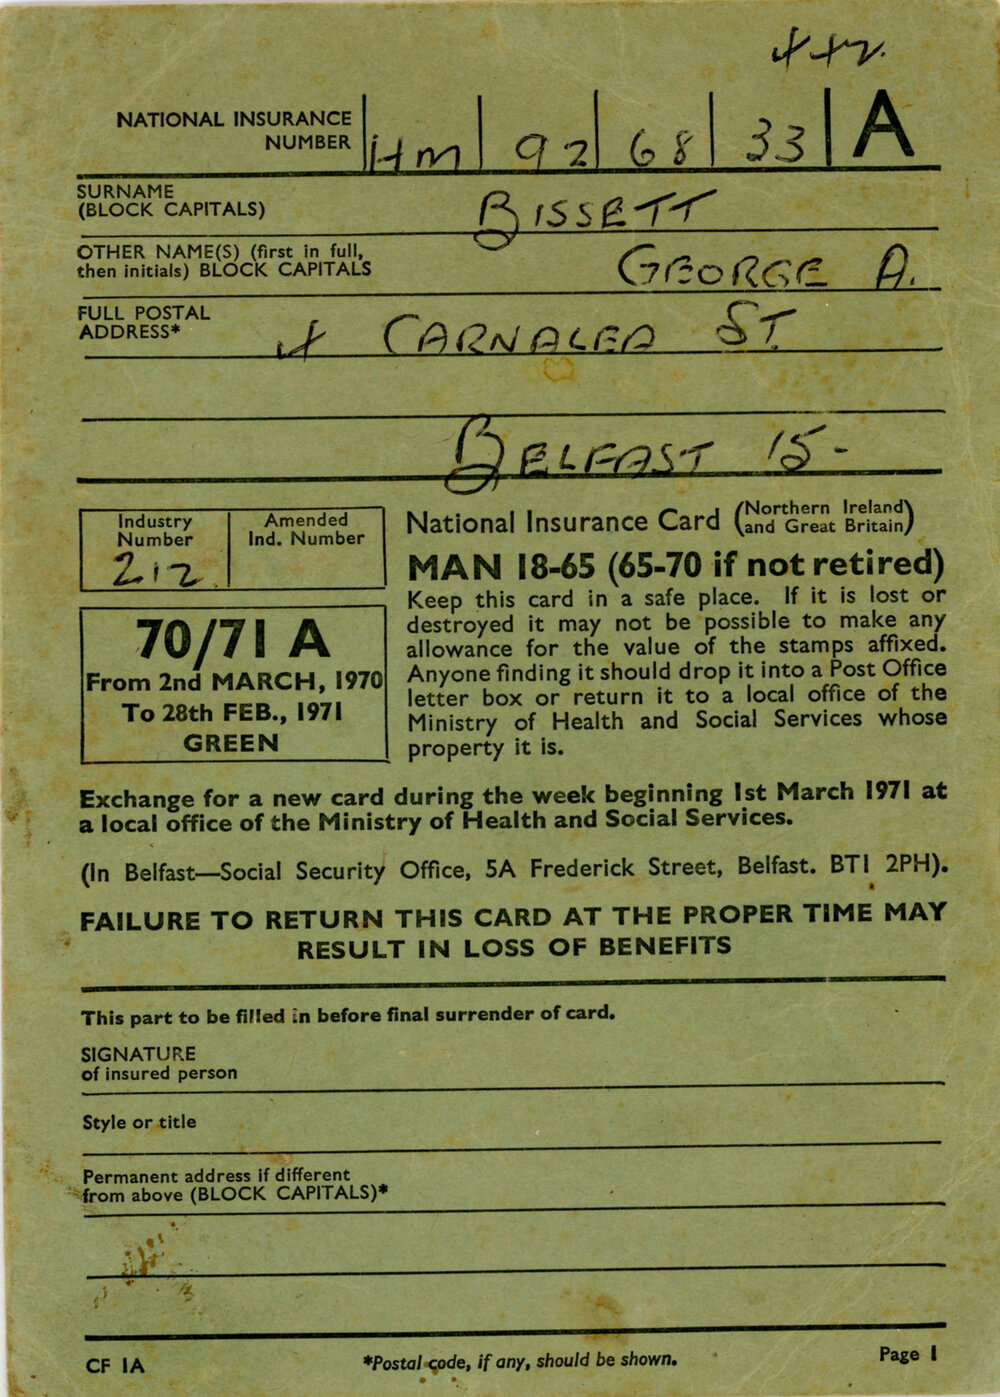 442.
NATIONAL INSURANCE
NUMBER HM 92 68 33 A
SURNAME
(BLOCK CAPITALS) BISSETT
OTHER NAME(S) (first in full,
then initials) BLOCK CAPITALS GEORGE A.
FULL POSTAL
ADDRESS* 4 CARNALEA ST.
BELFAST 15-
Industry
Number
212
Amended
Ind. Number
70/71 A
From 2nd MARCH, 1970
To 28th FEB., 1971
GREEN
National Insurance Card (Northern Ireland
and Great Britain)
MAN 18-65 (65-70 if not retired)
Keep this card in a safe place. If it is lost or
destroyed it may not be possible to make any
allowance for the value of the stamps affixed.
Anyone finding it should drop it into a Post Office
letter box or return it to a local office of the
Ministry of Health and Social Services whose
property it is.
Exchange for a new card during the week beginning 1st March 1971 at
a local office of the Ministry of Health and Social Services.
(In Belfast—Social Security Office, 5A Frederick Street, Belfast. BT1 2PH).
FAILURE TO RETURN THIS CARD AT THE PROPER TIME MAY
RESULT IN LOSS OF BENEFITS
This part to be filled in before final surrender of card.
SIGNATURE
of insured person
Style or title
Permanent address if different
from above (BLOCK CAPITALS)*
CF 1A
*Postal code, if any, should be shown.
Page 1